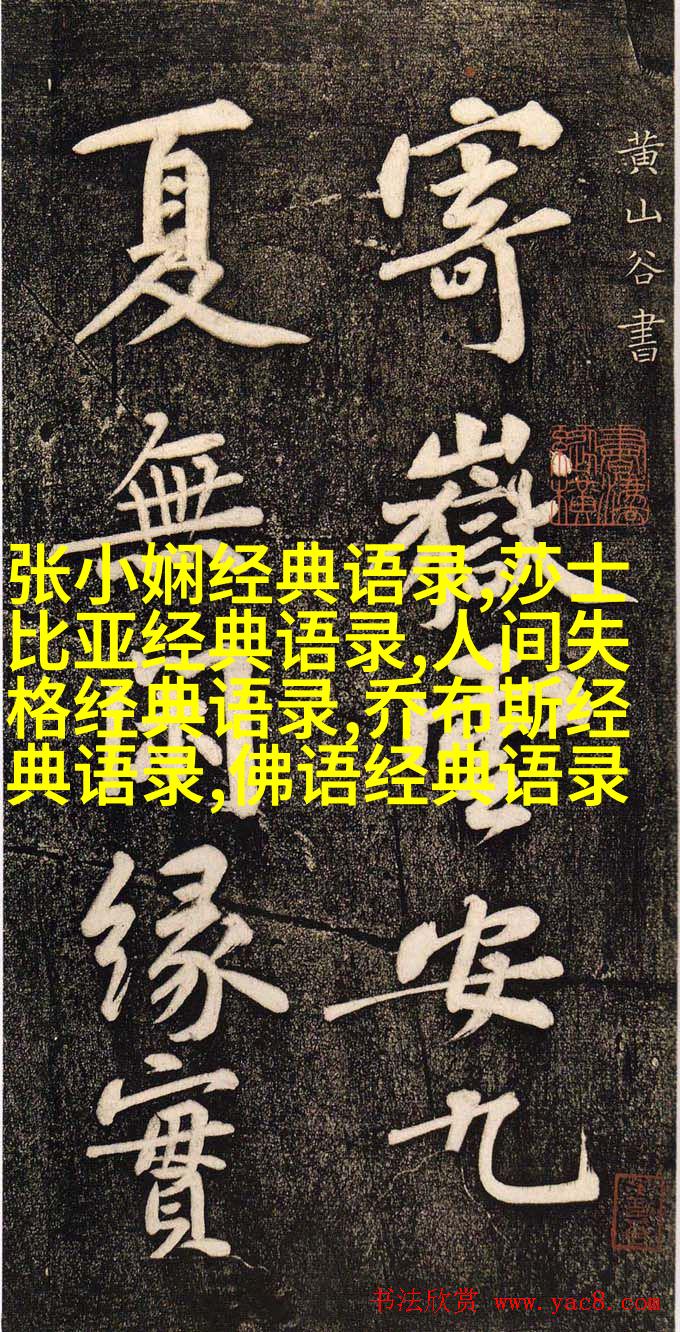 黄山谷書
寄嶽雲安九
夏無緣實
张小娴经典语录,莎士
比亚经典语录,人间失
格经典语录,乔布斯经
典语录,佛语经典语录
书法欣赏 www.yac8.com